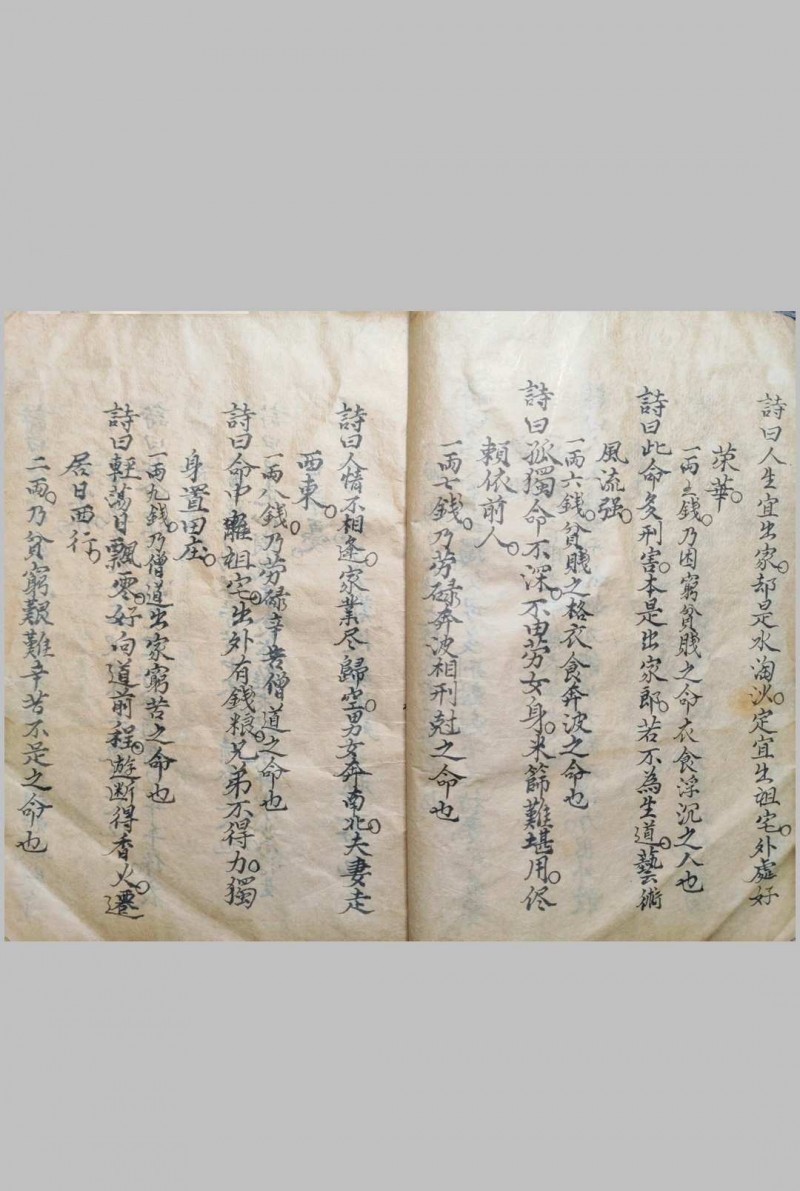 詩曰人生宜出家。却是水淘沙。定宜出祖宅。外處好
荣華。
一兩五錢。乃困窮貧賤之命衣食浮沉之人也
詩曰此命多刑害。本是出家郎。若不為生道。藝術
風流强。
一兩六錢。貧賤之格衣食奔波之命也
詩曰孤獨命不深。不由劳女身。米篩難堪用。侭
賴依前人。
一兩七錢。乃劳碌奔波相刑尅之命也
詩曰人情不相逢。家業尽歸空。男女奔南北。夫妻走
西東。
一兩八錢。乃劳碌辛苦僧道之命也
詩曰命中離祖宅。出外有錢粮。兄弟不得力。獨
身置田庄。
一兩九錢。乃僧道出家窮苦之命也
詩曰輕荡日飄零。好向道前程。遊断得香火。遷
居日西行。
二兩。乃貧窮艱難辛苦不足之命也